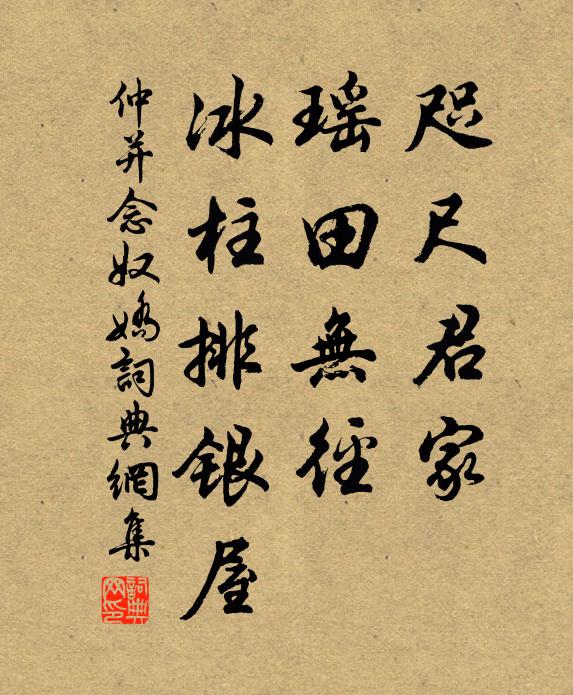 咫尺君家
瑶田無徑
冰柱排銀屋
仲并念奴嬌詞典網集
詞典網印